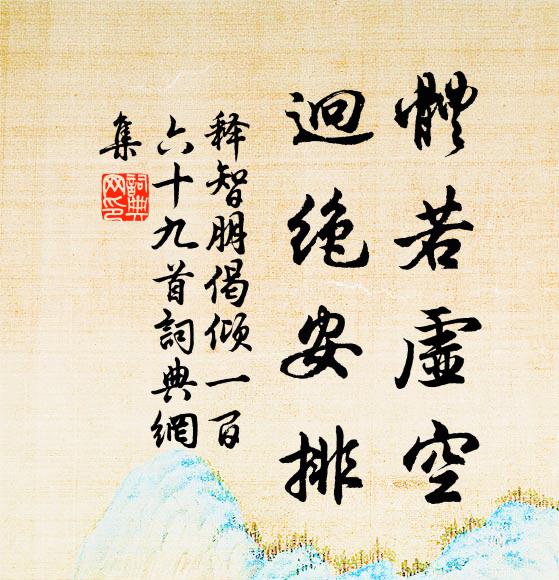 體若虛空
迥絶安排
释智朋偈倾一百
六十九首詞典網
集
詞典網印